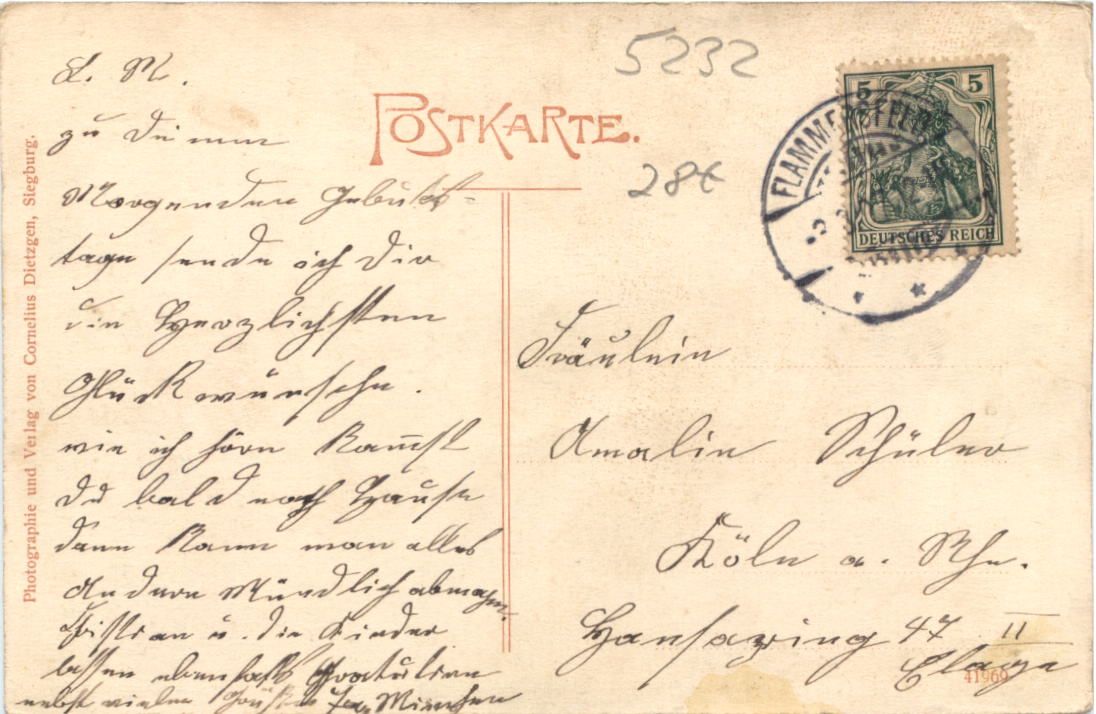 5232
POSTKARTE.
28€
5 5
DEUTSCHES REICH
FLAMMERSFELD
Photographie und Verlag von Cornelius Dietzgen, Siegburg.
L. M.
zu Deinem
Morgenden Gebuhts-
tage sende ich Dir
die Herzlichsten
Glückwünsche.
wie ich höre kommst
Du bald nach Hause
dann kann man alles
Andere Mündlich abmachen.
u. die Kinder
lassen ebenfalls Gratulieren
nebst vielen Grüßen
Fräulein
Amalie Schüler
Köln a. Rhe.
Hansaring 47 II
Etage
41969